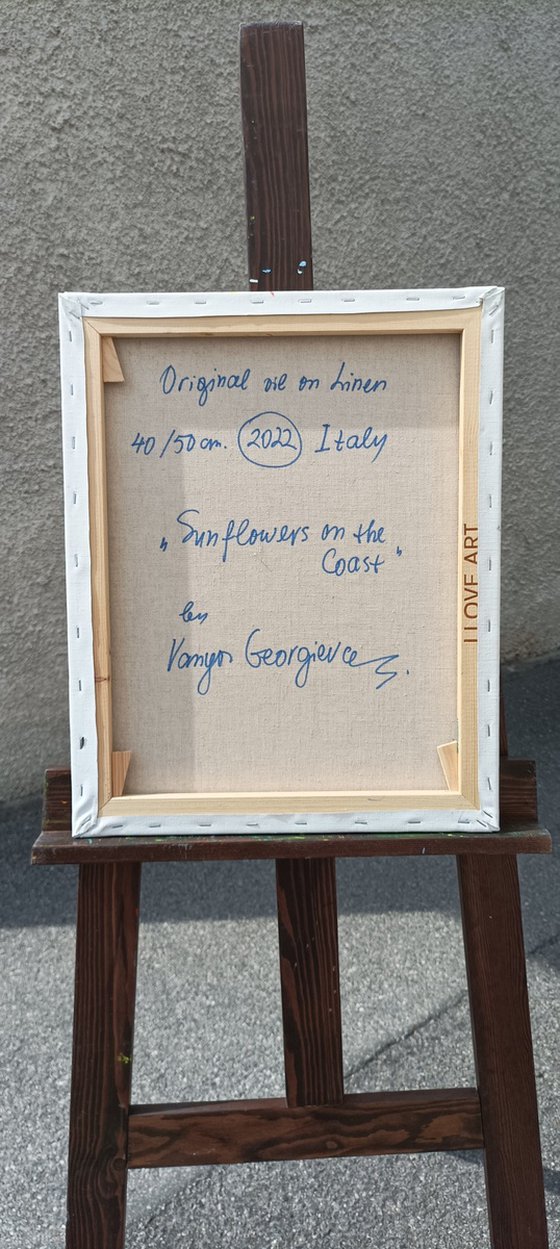 Original oil on Linen
40/50 cm. 2022 Italy
„Sunflowers on the
Coast"
by
Vanya Georgieva
I LOVE ART